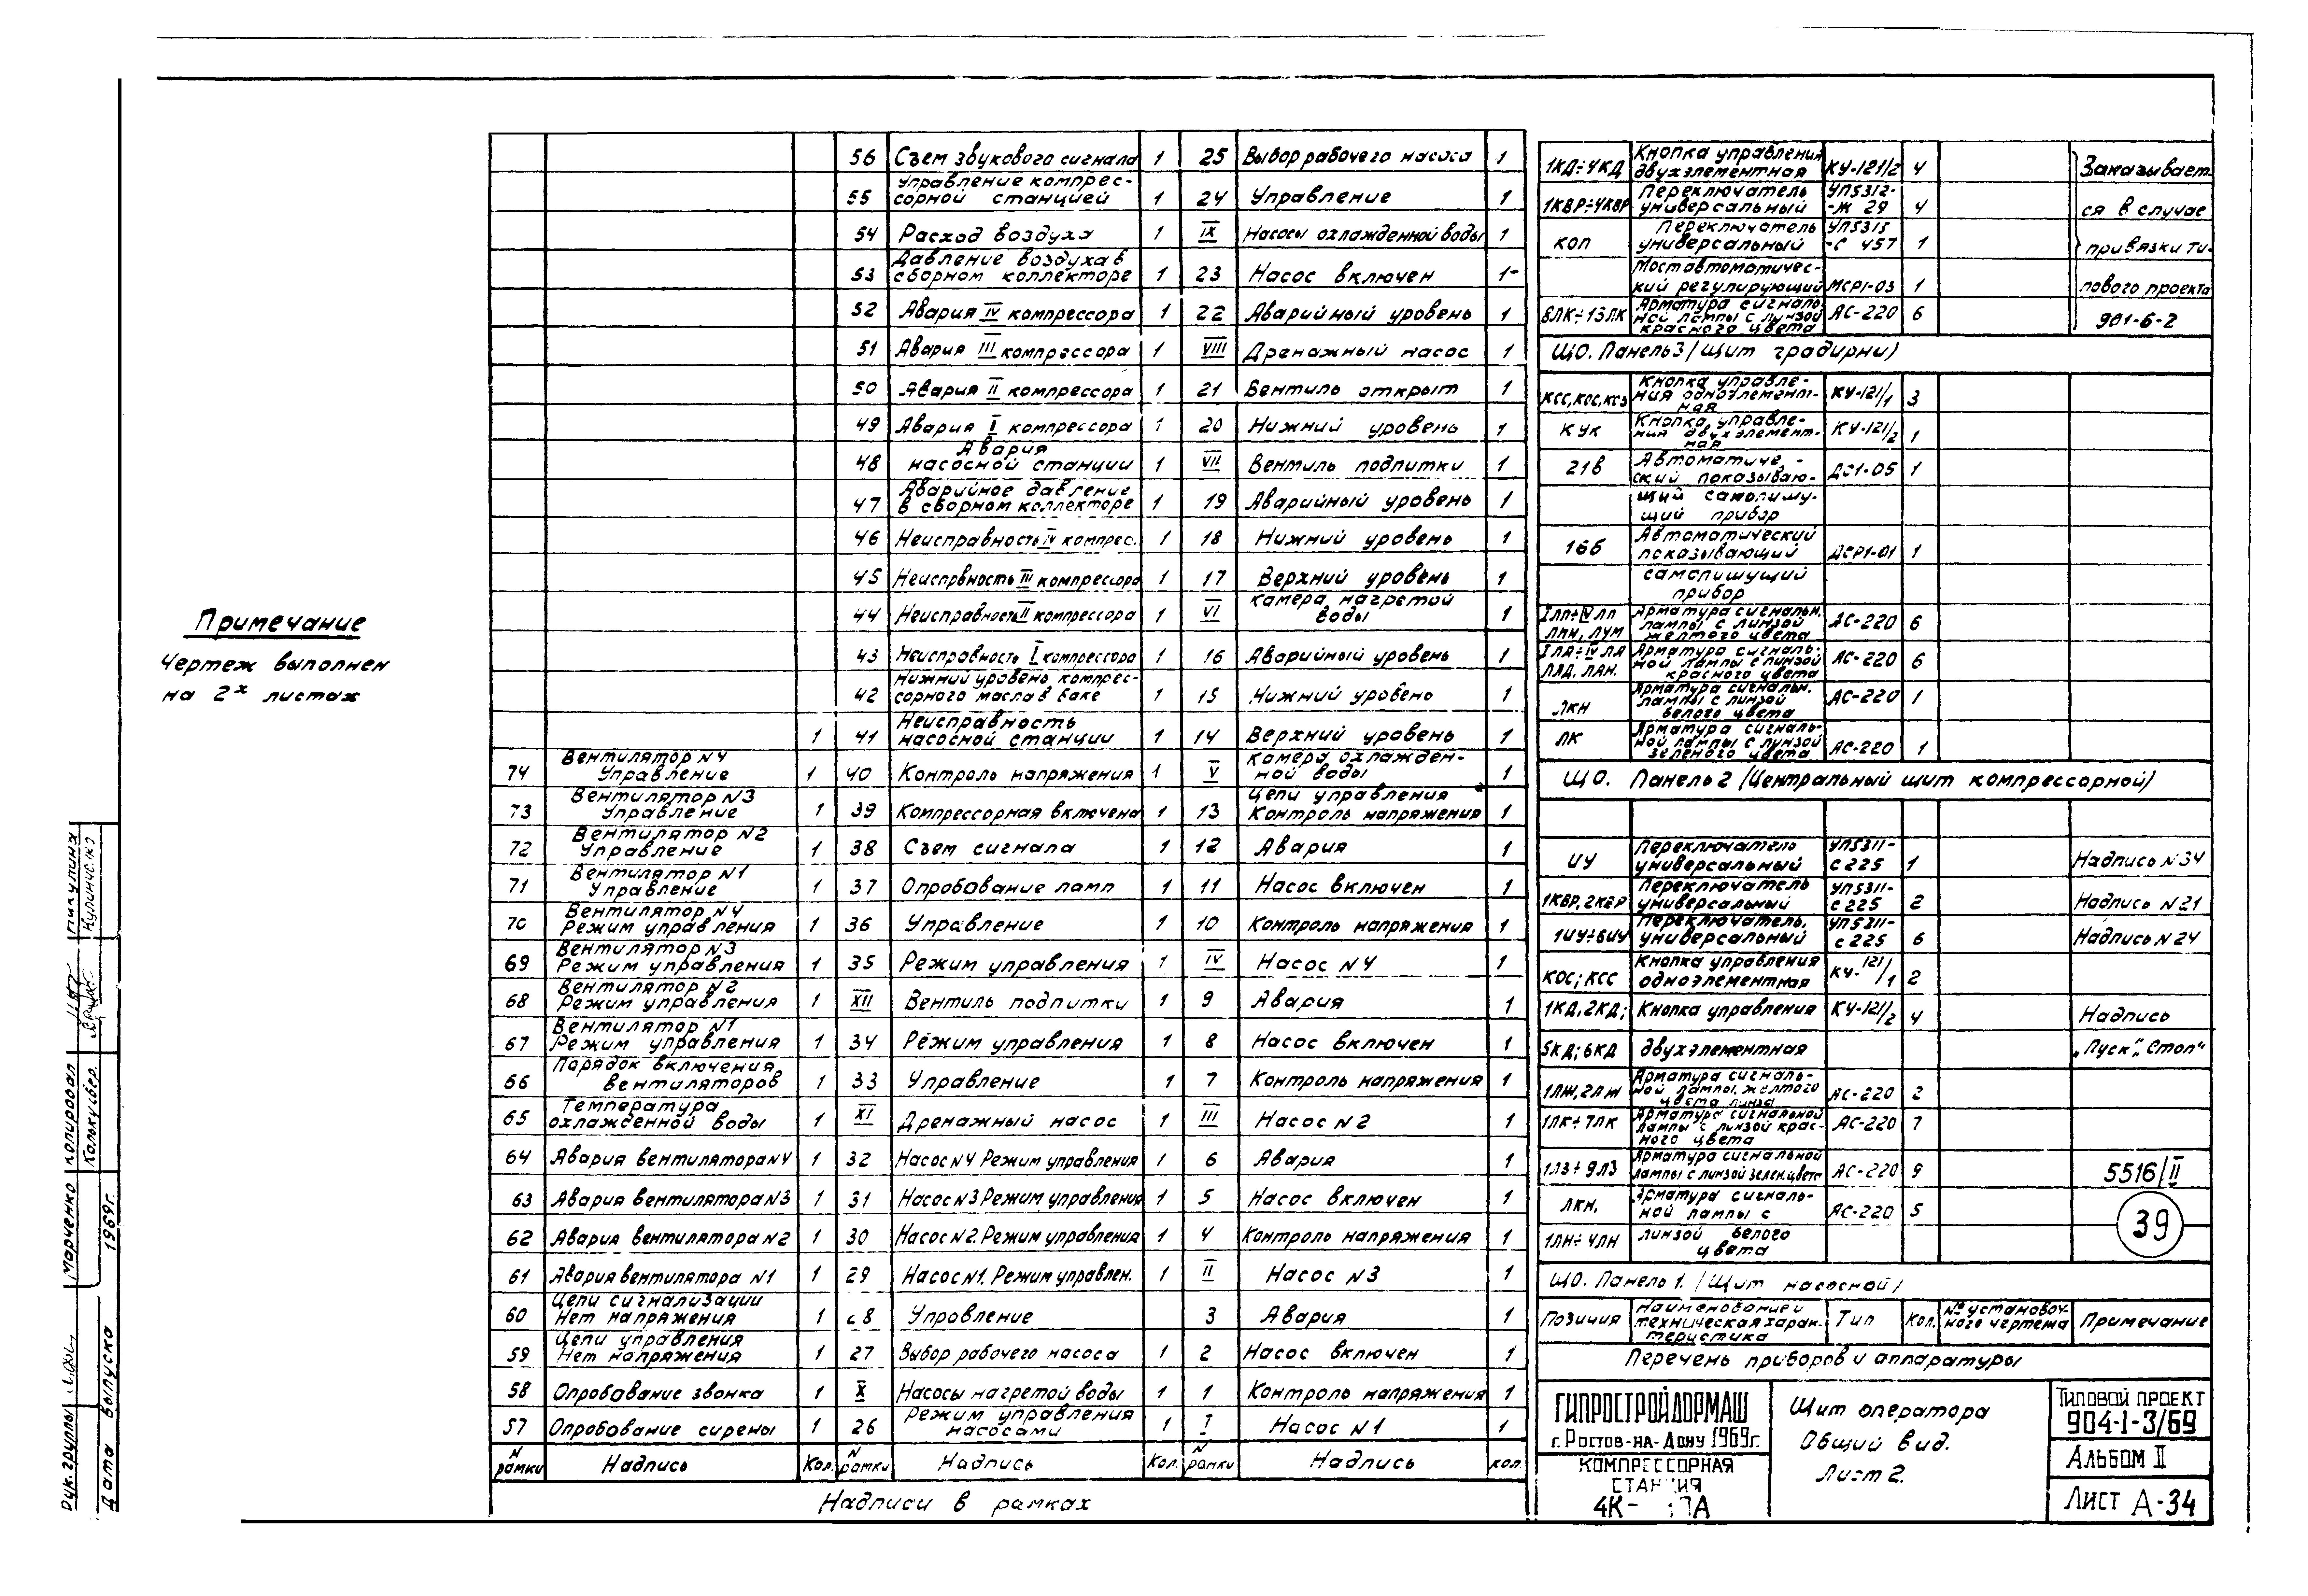 56 Съем звукового сигнала 1 25 Выбор рабочего насоса 1
55 Управление компрес-
сорной станцией 1 24 Управление 1
54 Расход воздуха 1 IX Насосы охлажденной воды 1
53 Давление воздуха в
сборном коллекторе 1 23 Насос включен 1
52 Авария IV компрессора 1 22 Аварийный уровень 1
51 Авария III компрессора 1 VIII Дренажный насос 1
50 Авария II компрессора 1 21 Вентиль открыт 1
49 Авария I компрессора 1 20 Нижний уровень 1
48 Авария
насосной станции 1 VII Вентиль подпитки 1
47 Аварийное давление
в сборном коллекторе 1 19 Аварийный уровень 1
46 Неисправность IV компрес. 1 18 Нижний уровень 1
45 Неисправность III компрессора 1 17 Верхний уровень 1
44 Неисправность II компрессора 1 VI Камера нагретой
воды 1
43 Неисправность I компрессора 1 16 Аварийный уровень 1
42 Нижний уровень компрес-
сорного масла в баке 1 15 Нижний уровень 1
1 41 Неисправность
насосной станции 1 14 Верхний уровень 1
74 Вентилятор N4
Управление 1 40 Контроль напряжения 1 V Камера охлажден-
ной воды 1
73 Вентилятор N3
Управление 1 39 Компрессорная включена 1 13 Цепи управления
Контроль напряжения 1
72 Вентилятор N2
Управление 1 38 Съем сигнала 1 12 Авария 1
71 Вентилятор N1
Управление 1 37 Опробование ламп 1 11 Насос включен 1
70 Вентилятор N4
Режим управления 1 36 Управление 1 10 Контроль напряжения 1
69 Вентилятор N3
Режим управления 1 35 Режим управления 1 IV Насос N4 1
68 Вентилятор N2
Режим управления 1 XII Вентиль подпитки 1 9 Авария 1
67 Вентилятор N1
Режим управления 1 34 Режим управления 1 8 Насос включен 1
66 Порядок включения
вентиляторов 1 33 Управление 1 7 Контроль напряжения 1
65 Температура
охлажденной воды 1 XI Дренажный насос 1 III Насос N2 1
64 Авария вентилятора N4 1 32 Насос N4 Режим управления 1 6 Авария 1
63 Авария вентилятора N3 1 31 Насос N3 Режим управления 1 5 Насос включен 1
62 Авария вентилятора N2 1 30 Насос N2. Режим управления 1 4 Контроль напряжения 1
61 Авария вентилятора N1 1 29 Насос N1. Режим управлен. 1 II Насос N3 1
60 Цепи сигнализации
Нет напряжения 1 28 Управление 3 Авария 1
59 Цепи управления
Нет напряжения 1 27 Выбор рабочего насоса 1 2 Насос включен 1
58 Опробование звонка 1 X Насосы нагретой воды 1 1 Контроль напряжения 1
57 Опробование сирены 1 26 Режим управления
насосами 1 I Насос N1 1
N рамки Надпись Кол. N рамки Надпись Кол. N рамки Надпись кол.
Надписи в рамках
Примечание
Чертеж выполнен
на 2х листах
1КД÷4КД Кнопка управления
двухэлементная КУ-121/2 4 Заказывает
1КВР÷4КВР Переключатель
универсальный УП5312-
-Ж 29 4 ся в случае
КОП Переключатель
универсальный УП5315
-С 457 1 привязки ти-
Мост автоматичес-
кий регулирующий МСР1-03 1 пового проекта
8ЛК÷13ЛК Арматура сигналь-
ной лампы с линзой
красного цвета АС-220 6 901-6-2
ЩО. Панель 3 /Щит градирни/
КСС, КОС, КСЗ Кнопка управле-
ния одноэлемент-
ная КУ-121/1 3
КУК Кнопка управле-
ния двухэлемент-
ная КУ-121/2 1
21в Автоматиче-
ский показываю-
щий самопишу-
щий прибор ДС1-05 1
16б Автоматический
показывающий
самопишущий
прибор ДСР1-01 1
IЛП÷IVЛП
ЛПН, ЛУМ Арматура сигнальн.
лампы с линзой
желтого цвета АС-220 6
IЛА÷IVЛА
ЛАД, ЛАН. Арматура сигналь-
ной лампы с линзой
красного цвета АС-220 6
ЛКН Арматура сигнальн.
лампы с линзой
белого цвета АС-220 1
ЛК Арматура сигналь-
ной лампы с линзой
зеленого цвета АС-220 1
ЩО. Панель 2 /Центральный щит компрессорной/
ИУ Переключатель
универсальный УП5311-
с 225 1 Надпись N34
1КВР, 2КВР Переключатель
универсальный УП5311-
с 225 2 Надпись N21
1ИУ÷6ИУ Переключатель.
универсальный УП5311-
с 225 6 Надпись N24
КОС; КСС Кнопка управления
одноэлементная КУ-121/1 2
1КД, 2КД; Кнопка управления КУ-121/2 4 Надпись
5КД; 6КД двухэлементная „Пуск”, „Стоп”
1ЛЖ, 2ЛЖ Арматура сигналь-
ной лампы, желтого
цвета линза АС-220 2
1ЛК÷7ЛК Арматура сигнальной
лампы с линзой крас-
ного цвета АС-220 7
1ЛЗ÷9ЛЗ Арматура сигнальной
лампы с линзой зелен. цвета АС-220 9 5516/II
ЛКН, Арматура сигналь-
ной лампы с АС-220 5 39
1ЛН÷4ЛН линзой белого
цвета
ЩО. Панель 1. /Щит насосной/
Позиция Наименование и
техническая харак-
теристика Тип Кол. № установоч-
ного чертежа Примечание
Перечень приборов и аппаратуры
ГИПРОСТРОЙДОРМАШ
г. Ростов-на-Дону 1969г.
КОМПРЕССОРНАЯ
СТАНЦИЯ
Щит оператора
Общий вид.
Лист 2.
Типовой проект
904-1-3/69
Альбом II
Лист А-34
Рук. группы Марченко Копировал Пикулина
Кальку свер.
Дата выпуска 1969г.